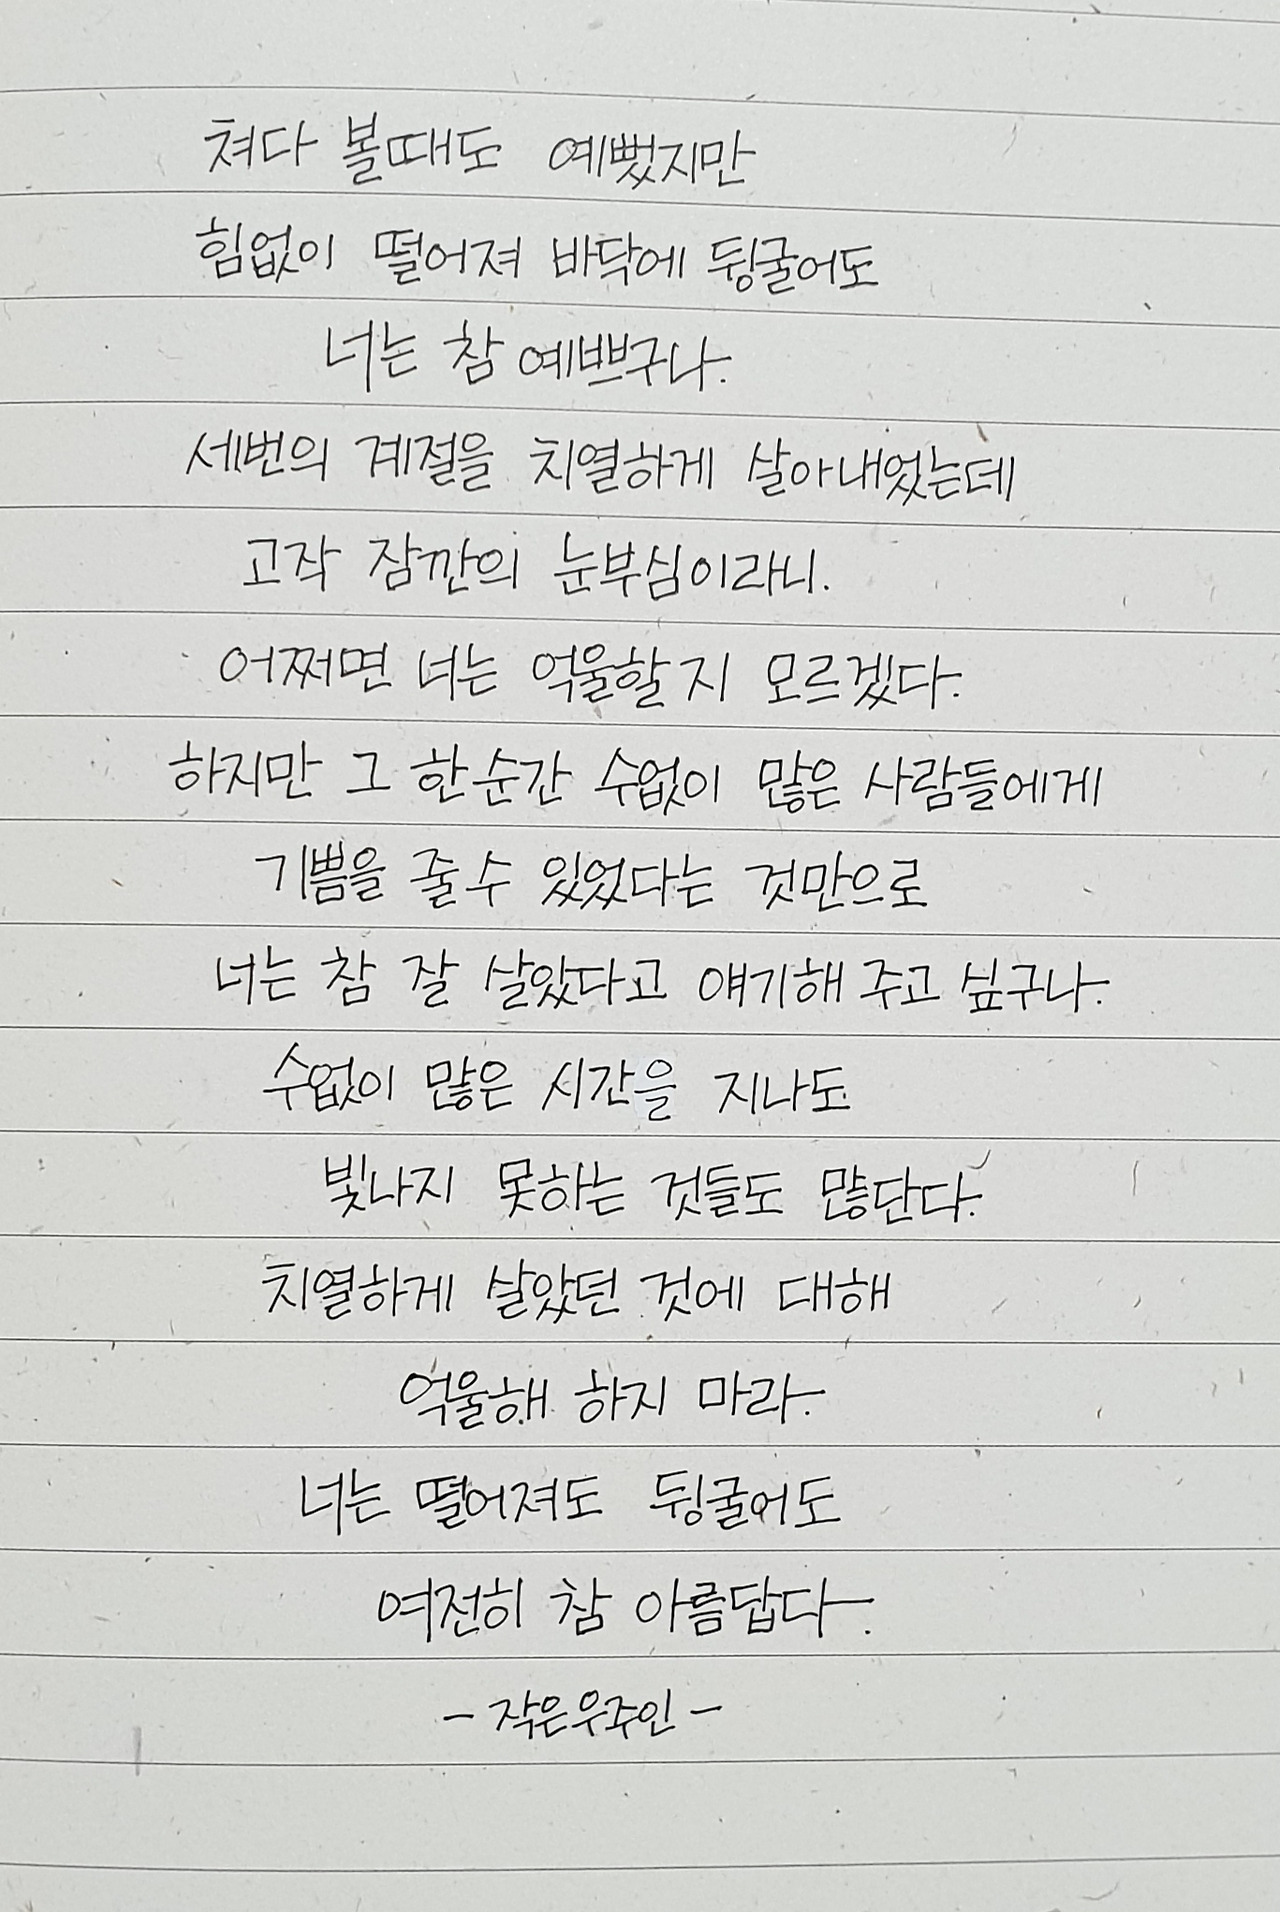 쳐다 볼때도 예뻤지만
힘없이 떨어져 바닥에 뒹굴어도
너는 참 예쁘구나.
세번의 계절을 치열하게 살아내었는데
고작 잠깐의 눈부심이라니.
어쩌면 너는 억울할지 모르겠다.
하지만 그 한순간 수없이 많은 사람들에게
기쁨을 줄수 있었다는 것만으로
너는 참 잘 살았다고 얘기해 주고 싶구나.
수없이 많은 시간을 지나도
빛나지 못하는 것들도 많단다.
치열하게 살았던 것에 대해
억울해 하지 마라.
너는 떨어져도 뒹굴어도
여전히 참 아름답다.
- 작은우주인 -